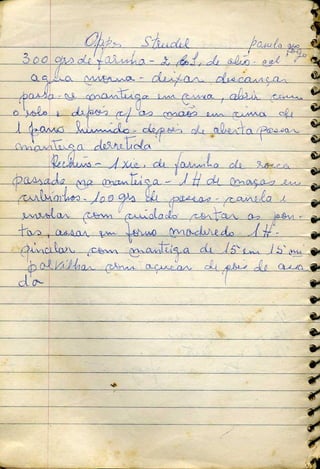 Strudel
300 grs de farinha - 2 col. de óleo - sal
agua morna - deixar descançar
passa-se manteiga em cima, abrir com
o rolo e depois c/ as mãos em cima de
1 pano humido - depois de aberta passar
manteiga derretida
Recheio - 1 xic. de farinha de rosca
passada na manteiga - 1 K de maças em
cubinhos - 100 grs de passas - canela e
enrolar com cuidado cortar as pon-
tas, assar em forno moderado 1 H -
pincelar com manteiga de 15 em 15 mi
polvilhar com açucar depois de assa
da